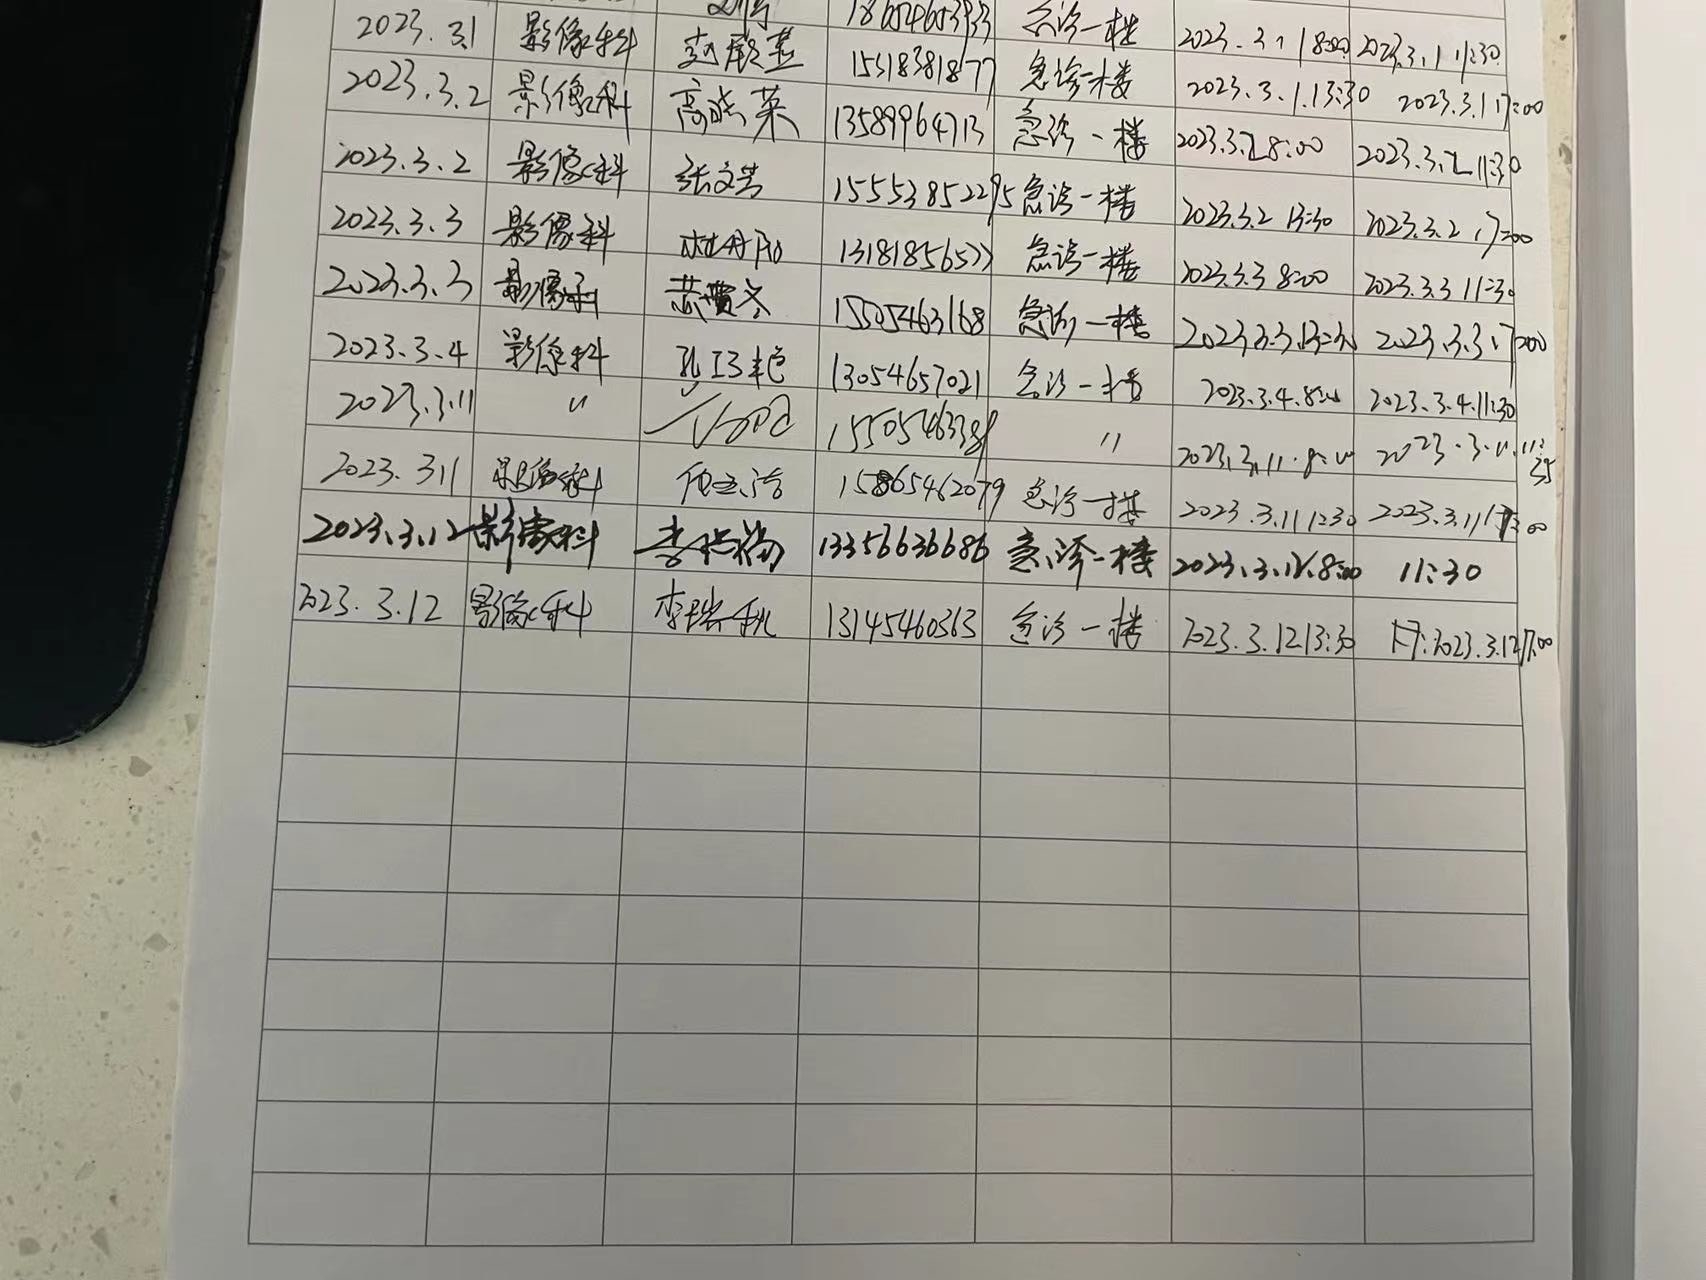 18654603933 急诊一楼
2023.3.1 影像科 2023.3.1 8:00 2023.3.1 11:30
15318381877 急诊一楼 2023.3.1.13:30 2023.3.1 17:00
2023.3.2 影像科 高晓英 13589964713 急诊一楼 2023.3.2 8:00 2023.3.2 11:30
2023.3.2 影像科 张文芳 15553852295 急诊一楼 2023.3.2 13:30 2023.3.2 17:00
2023.3.3 影像科 杜丹丹 13181856577 急诊一楼 2023.3.3 8:00 2023.3.3 11:30
2023.3.3 影像科 15305463168 急诊一楼 2023.3.3.13:30 2023.3.3.17:00
2023.3.4 影像科 13054657021 急诊一楼 2023.3.4.8:00 2023.3.4.11:30
2023.3.11 〃 〃 2023.3.11.8:00 2023.3.11.11:35
2023.3.11 影像科 15865462079 急诊一楼 2023.3.11 13:30 2023.3.11 17:00
2023.3.12 影像科 13356636686 急诊一楼 2023.3.12.8:00 11:30
2023.3.12 影像科 李瑞秋 13145460363 急诊一楼 2023.3.12 13:30 2023.3.12 17:00